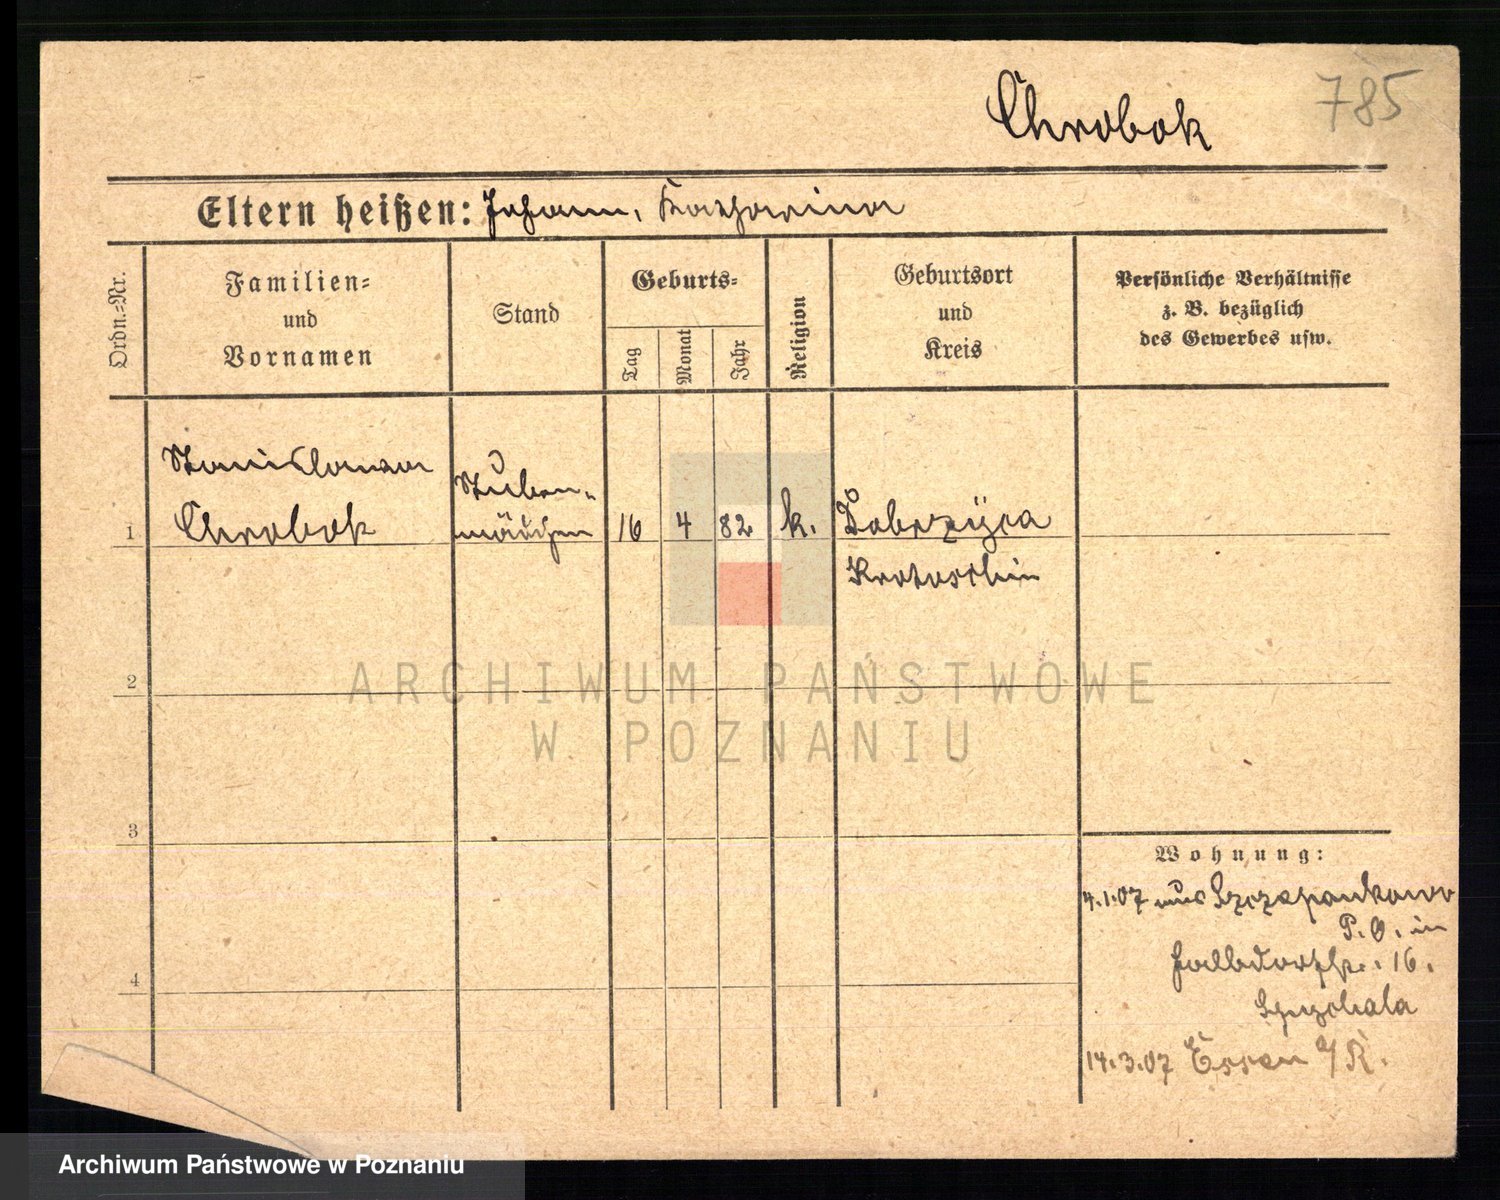 Chrobok
785
Eltern heißen: Johann, Katharina
Ordn.=Nr.
Familien=
und
Vornamen
Stand
Geburts=
Tag
Monat
Jahr
Religion
Geburtsort
und
Kreis
Persönliche Verhältnisse
z. B. bezüglich
des Gewerbes usw.
1
Stanislawa
Chrobok
Stuben-
mädchen
16
4
82
k.
Dobrzyca
Krotoschin
2
3
4
Wohnung:
4.1.07 aus Szczepankowo
P.O. in
Halbdorfstr. 16.
14.3.07 Essen a/R.
ARCHIWUM PAŃSTWOWE
W POZNANIU
Archiwum Państwowe w Poznaniu